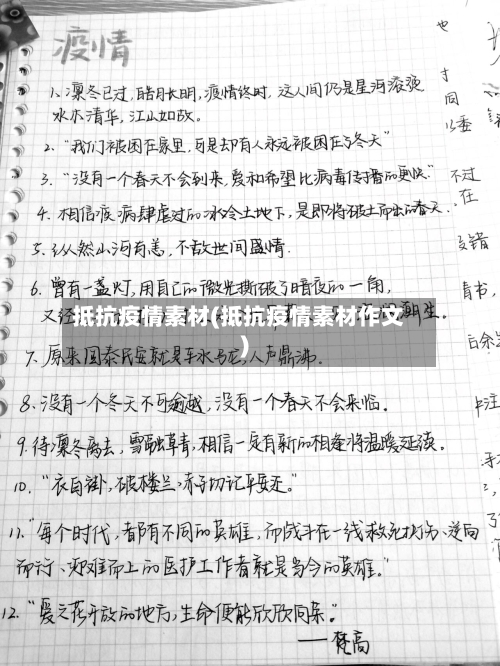 疫情
1、凛冬已过,皓月长明,疫情终时,这人间仍是星河滚烫
水木清华,江山如故。
2、"我们被困在家里,可是却有人永远被困在了冬天"
3、"没有一个春天不会到来,爱和希望比病毒传播的更快"
4、相信疫病肆虐过的冰冷土地下,是即将破土而出的春天。
5、纵然山河有恙,不敌世间盛情.
6、曾有一盏灯,用自己的微光撕破了暗夜的一角,
又经
生。
抵抗疫情素材(抵抗疫情素材作文
)
7、原来国泰民安就是车水马龙,人声鼎沸.
8、没有一个冬天不可逾越,没有一个春天不会来临。
9、待凛冬离去,雪融草青,相信一定有新的相逢将温暖延续。
10、"衣白褂,破楼兰,赤子切记平安还。"
11、"每个时代,都有不同的英雄,而战斗在一线救死扶伤、逆向
而行、迎难而上的医护工作者就是当今的英雄。"
12、"爱之花开放的地方,生命便能欣欣向荣。"
——梵高
也
寸
同
以委
不过
在
友错
青书,
白余
注